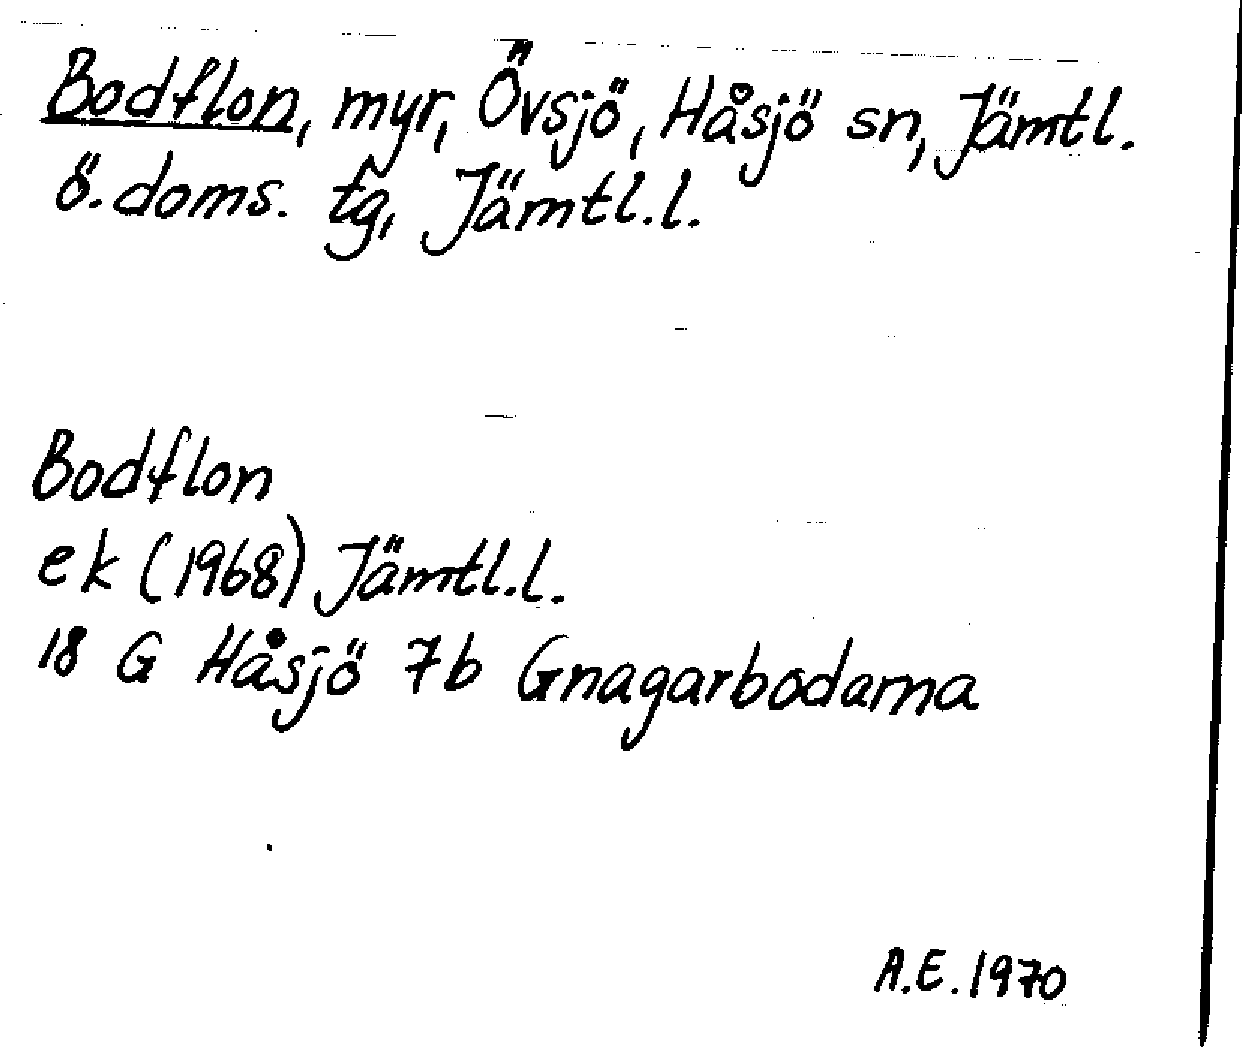 Bodflon, myr, Övsjö, Håsjö sn, Jämtl.
ö. doms. tg, Jämtl.l.
Bodflon
ek (1968) Jämtl.l.
18 G Håsjö 7b Gnagarbodarna
A.E. 1970